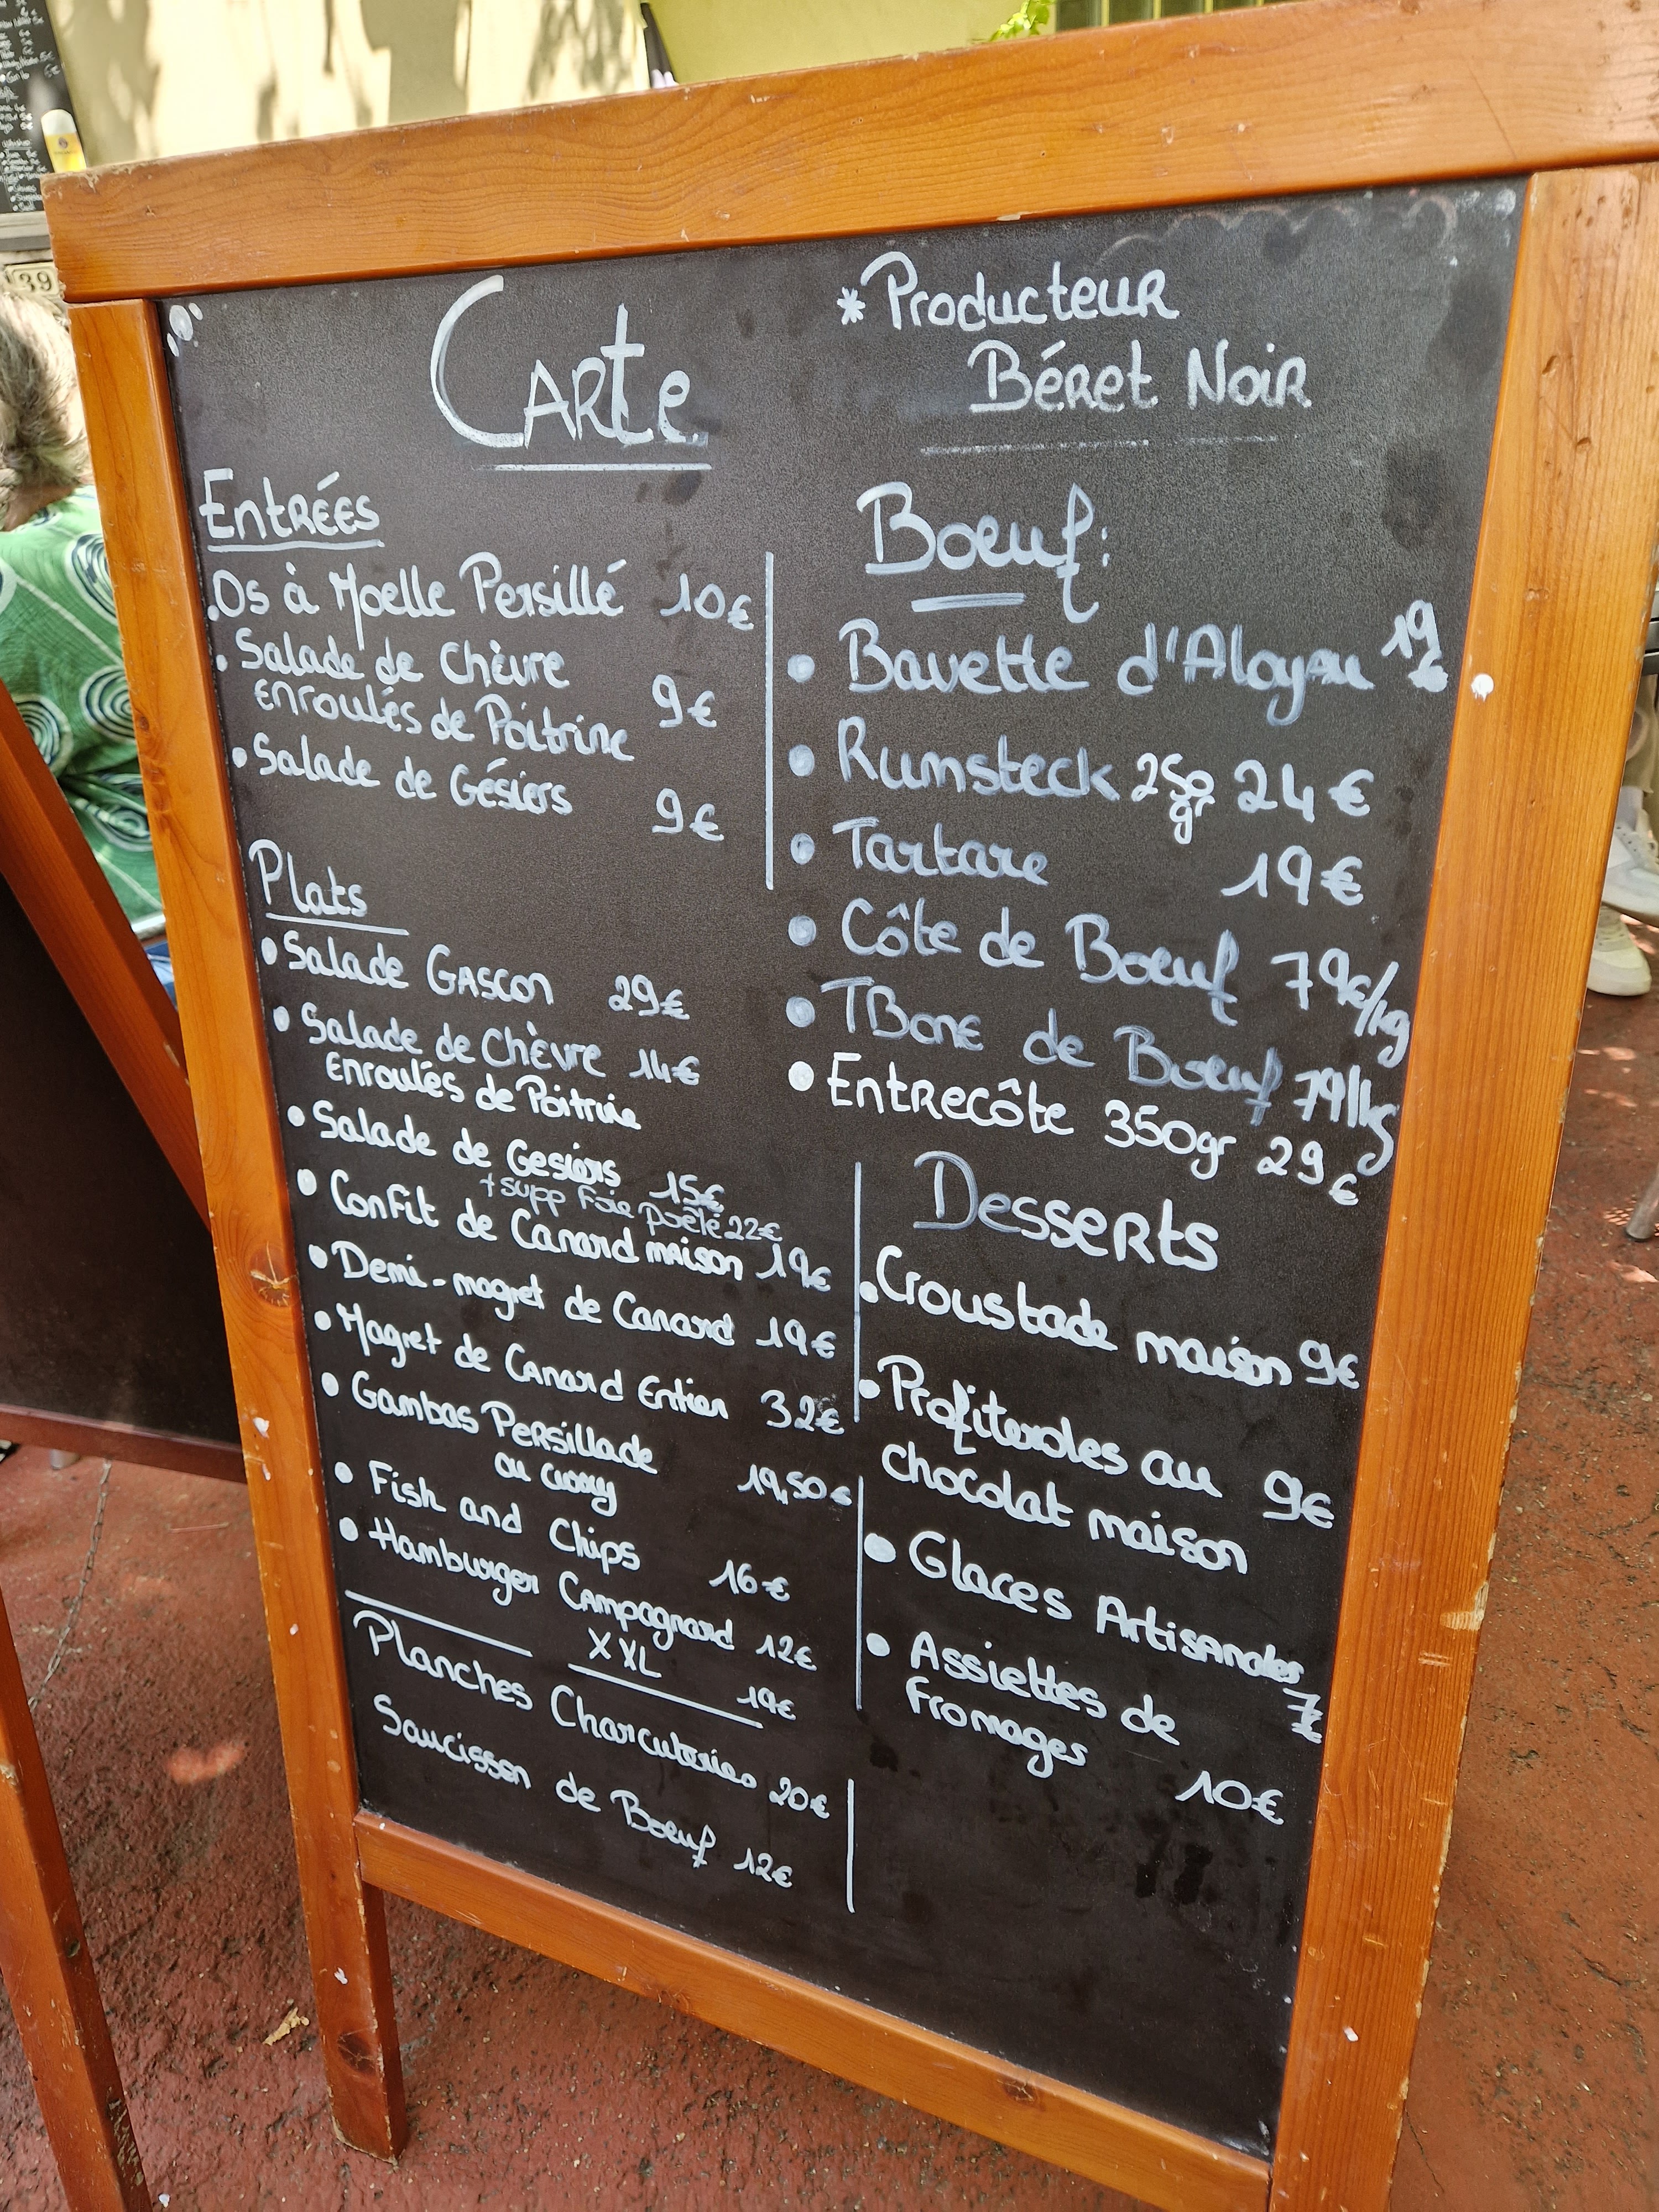 Carte
Entrées
Os à Moelle Persillé 10€
Salade de Chèvre
enroulés de Poitrine 9€
Salade de Gésiers 9€
Plats
Salade Gascon 29€
Salade de Chèvre 14€
Enroulés de Poitrine
Salade de Gesiers 15€
+ supp Foie poêlé 22€
Confit de Canard maison 19€
Demi-magret de Canard 19€
Magret de Canard Entier 32€
Gambas Persillade
ou curry 19,50€
Fish and Chips 16€
Hamburger Campagnard 12€
XXL 19€
Planches Charcuteries 20€
Saucisson de Boeuf 12€
* Producteur
Béret Noir
Boeuf:
Bavette d'Aloyau 19€
Rumsteck 250gr 24€
Tartare 19€
Côte de Boeuf 79€/kg
TBone de Boeuf 79/kg
Entrecôte 350gr 29€
Desserts
Croustade maison 9€
Profiteroles au 9€
chocolat maison
Glaces Artisanales 7€
Assiettes de
fromages 10€
39